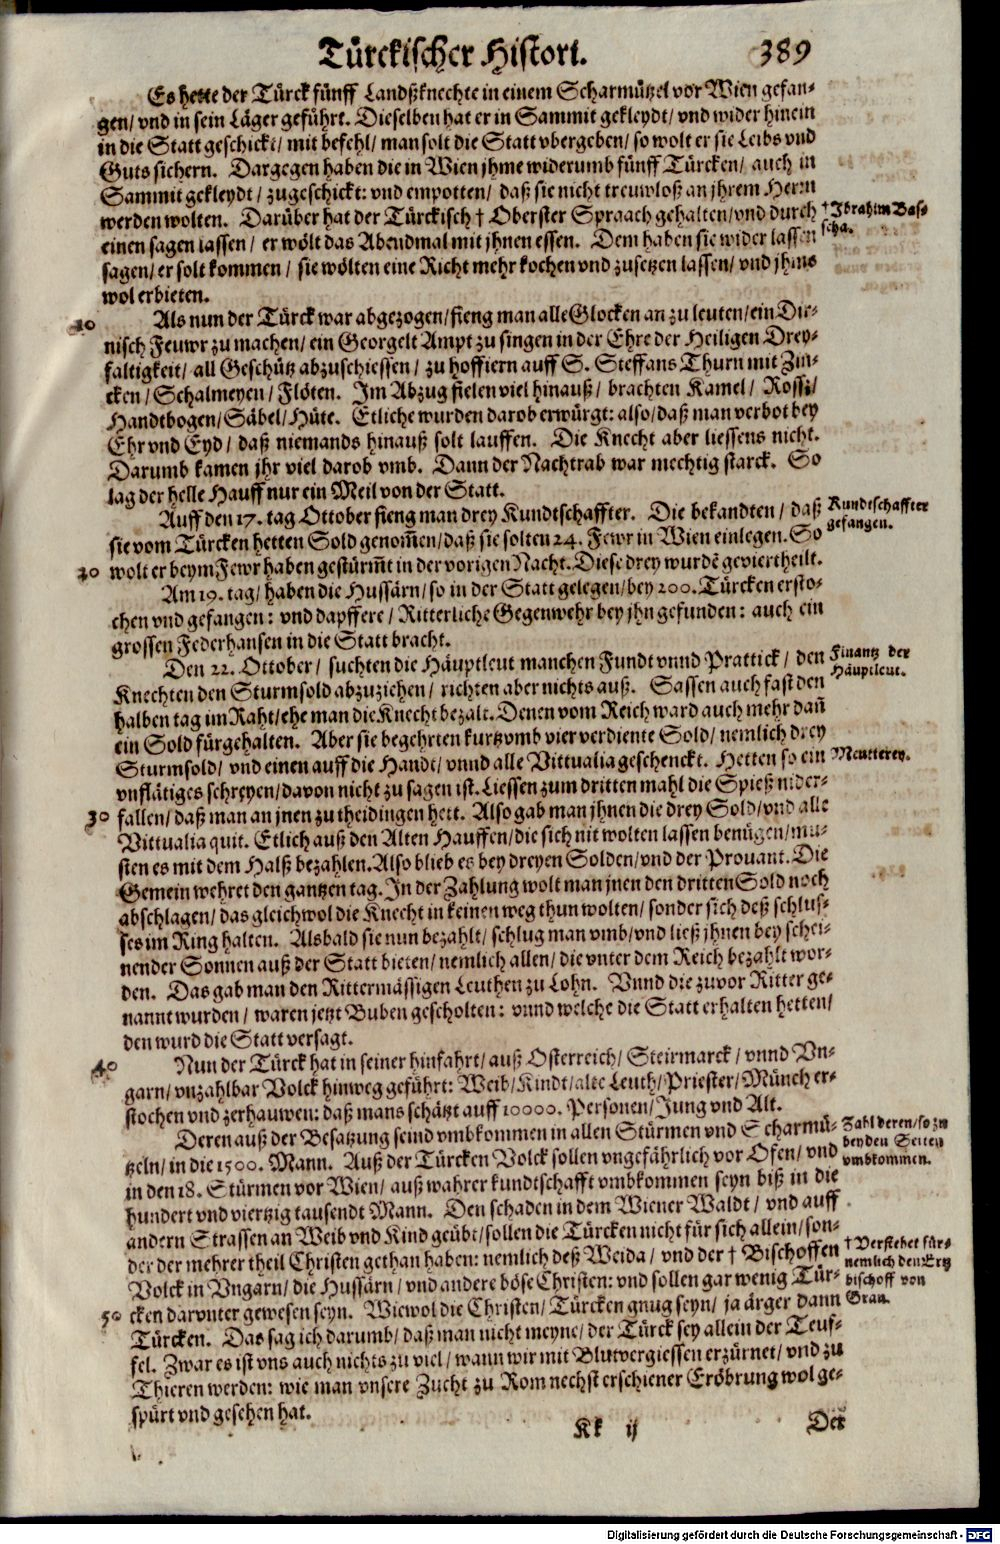 Türckischer Histori. 389
Es hette der Türck fünff Landßknechte in einem Scharmützel vor Wien gefan-
gen/ vnd in sein Läger geführt. Dieselben hat er in Sammit gekleydt/ vnd wider hinein
in die Statt geschickt/ mit befehl/ man solt die Statt vbergeben/ so wolt er sie Leibs vnd
Guts sichern. Dargegen haben die in Wien jhme widerumb fünff Türcken/ auch in
Sammit gekleydt/ zugeschickt: vnd empotten/ daß sie nicht treuwloß an jhrem Herrn
werden wolten. Darüber hat der Türckisch † Oberster Spraach gehalten/ vnd durch
† Ibrahim Bas-
scha.
einen sagen lassen/ er wölt das Abendmal mit jhnen essen. Dem haben sie wider lassen
sagen/ er solt kommen/ sie wölten eine Richt mehr kochen vnd zusetzen lassen/ vnd jhms
wol erbieten.
10
Als nun der Türck war abgezogen/ fieng man alle Glocken an zu leuten/ ein Dir-
nisch Feuwr zu machen/ ein Georgelt Ampt zu singen in der Ehre der Heiligen Drey-
faltigkeit/ all Geschütz abzuschiessen/ zu hoffiern auff S. Steffans Thurn mit Zin-
cken/ Schalmeyen/ Flöten. Im Abzug fielen viel hinauß/ brachten Kamel/ Rossz/
Handtbogen/ Säbel/ Hüte. Etliche wurden darob erwürgt: also/ daß man verbot bey
Ehr vnd Eyd/ daß niemands hinauß solt lauffen. Die Knecht aber liessens nicht.
Darumb kamen jhr viel darob vmb. Dann der Nachtrab war mechtig starck. So
lag der helle Hauff nur ein Meil von der Statt.
Auff den 17. tag Ottober fieng man drey Kundtschaffter. Die bekandten/ daß
Kundtschaffter
gefangen.
sie vom Türcken hetten Sold genom̃en/ daß sie solten 24. Fewr in Wien einlegen. So
20 wolt er beym Fewr haben gestürm̃t in der vorigen Nacht. Diese drey wurdẽ geviertheilt.
Am 19. tag/ haben die Hussärn/ so in der Statt gelegen/ bey 200. Türcken ersto-
chen vnd gefangen: vnd dapffere/ Ritterliche Gegenwehr bey jhn gefunden: auch ein
grossen Federhansen in die Statt bracht.
Den 22. Ottober/ suchten die Häuptleut manchen Fundt vnnd Prattick/ den
Finantz der
Häuptleut.
Knechten den Sturmsold abzuziehen/ richten aber nichts auß. Sassen auch fast den
halben tag im Raht/ ehe man die Knecht bezalt. Denen vom Reich ward auch mehr dañ
ein Sold fürgehalten. Aber sie begehrten kurtzvmb vier verdiente Sold/ nemlich drey
Sturmsold/ vnd einen auff die Handt/ vnnd alle Vittualia geschenckt. Hetten so ein
Meutterey.
vnflätiges schreyen/ davon nicht zu sagen ist. Liessen zum dritten mahl die Spieß nider-
30 fallen/ daß man an jnen zu theidingen hett. Also gab man jhnen die drey Sold/ vnd alle
Vittualia quit. Etlich auß den Alten Hauffen/ die sich nit wolten lassen benügen/ mu-
sten es mit dem Halß bezahlen. Also blieb es bey dreyen Solden/ vnd der Prouant. Die
Gemein wehret den gantzen tag. In der Zahlung wolt man jnen den dritten Sold noch
abschlagen/ das gleichwol die Knecht in keinen weg thun wolten/ sonder sich deß schlus-
ses im Ring halten. Alsbald sie nun bezahlt/ schlug man vmb/ vnd ließ jhnen bey schei-
nender Sonnen auß der Statt bieten/ nemlich allen/ die vnter dem Reich bezahlt wor-
den. Das gab man den Rittermässigen Leuthen zu Lohn. Vnnd die zuvor Ritter ge-
nannt wurden/ waren jetzt Buben gescholten: vnnd welche die Statt erhalten hetten/
den wurd die Statt versagt.
40
Nun der Türck hat in seiner hinfahrt/ auß Osterreich/ Steirmarck/ vnnd Vn-
garn/ vnzahlbar Volck hinweg geführt: Weib/ Kindt/ alte Leuth/ Priester/ Münch er-
stochen vnd zerhauwen: daß mans schätzt auff 10000. Personen/ Jung vnd Alt.
Deren auß der Besatzung seind vmbkommen in allen Stürmen vnd Scharmü-
Zahl deren/ so zu
beyden Seiten
vmbkommen.
tzeln/ in die 1500. Mann. Auß der Türcken Volck sollen vngefährlich vor Ofen/ vnd
in den 18. Stürmen vor Wien/ auß wahrer kundtschafft vmbkommen seyn biß in die
hundert vnd viertzig tausendt Mann. Den schaden in dem Wiener Waldt/ vnd auff
andern Strassen an Weib vnd Kind geübt/ sollen die Türcken nicht für sich allein/ son-
der der mehrer theil Christen gethan haben: nemlich deß Weida/ vnd der † Bischoffen
† Verstehet für-
nemlich den Ertz
bischoff von
Gran.
Volck in Vngarn/ die Hussärn/ vnd andere böse Christen: vnd sollen gar wenig Tür-
50 cken darvnter gewesen seyn. Wiewol die Christen/ Türcken gnug seyn/ ja ärger dann
Türcken. Das sag ich darumb/ daß man nicht meyne/ der Türck sey allein der Teuf-
fel. Zwar es ist vns auch nichts zu viel/ wann wir mit Blutvergiessen erzürnet/ vnd zu
Thieren werden: wie man vnsere Zucht zu Rom nechst erschiener Eröbrung wol ge-
spürt vnd gesehen hat.
Kk ij Der
Digitalisierung gefördert durch die Deutsche Forschungsgemeinschaft - DFG